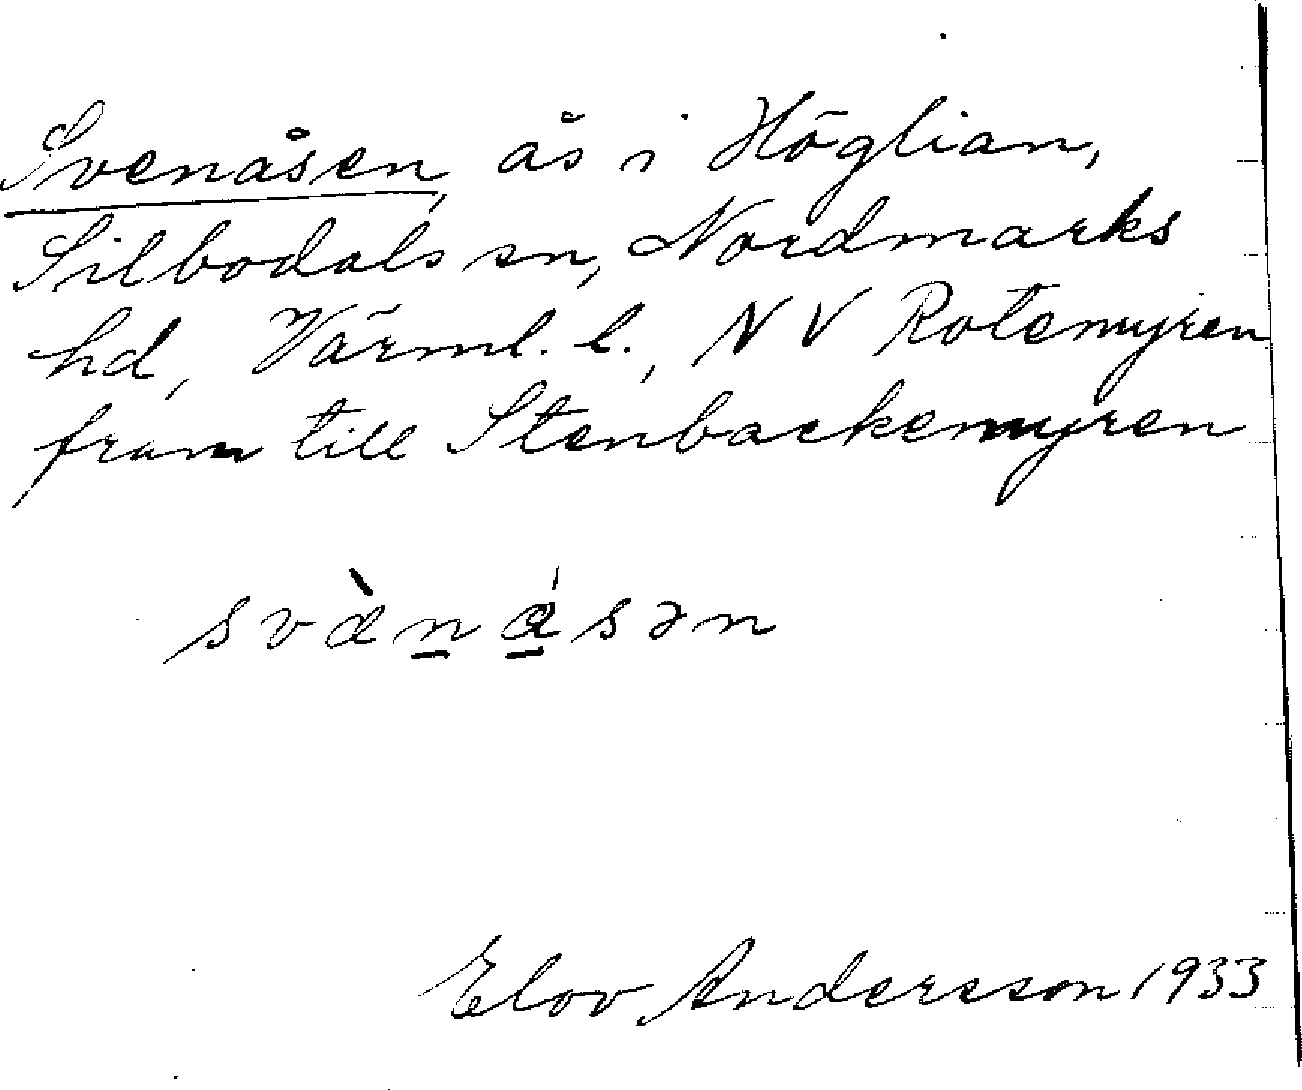 Svenåsen, ås i Höglian,
Silbodals sn, Nordmarks
hd, Värml. l., NV Rotemyren
fram till Stenbackemyren
Elov Andersson 1933